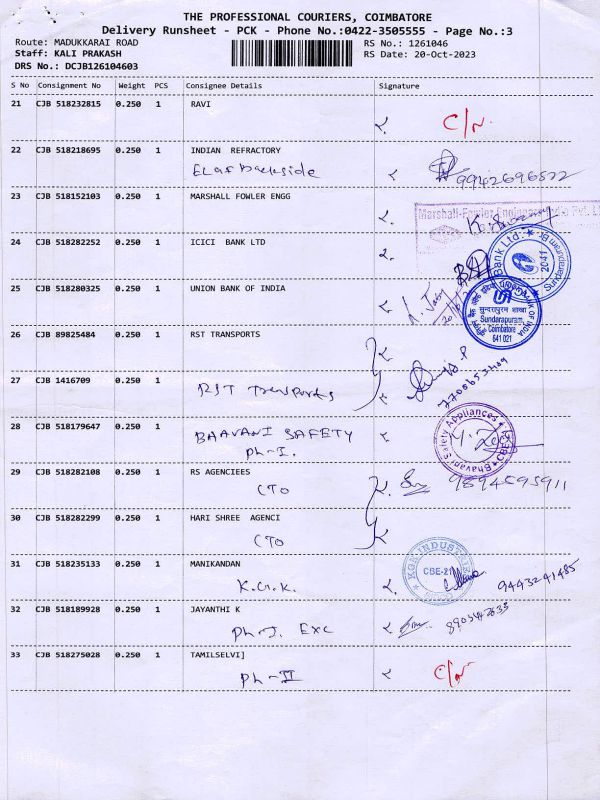 THE PROFESSIONAL COURIERS, COIMBATORE
Delivery Runsheet - PCK - Phone No.:0422-3505555 - Page No.:3
Route: MADUKKARAI ROAD RS No.: 1261046
Staff: KALI PRAKASH RS Date: 20-Oct-2023
DRS No.: DCJB126104603
S No Consignment No Weight PCS Consignee Details Signature
21 CJB 518232815 0.250 1 RAVI
C/N.
22 CJB 518218695 0.250 1 INDIAN REFRACTORY
Backside 9942696822
23 CJB 518152103 0.250 1 MARSHALL FOWLER ENGG
Marshall-Fowler Engineers India Pvt. Lt
24 CJB 518282252 0.250 1 ICICI BANK LTD
Bank Ltd. 2041 Sundarapuram Br.
25 CJB 518280325 0.250 1 UNION BANK OF INDIA
UNION BANK OF INDIA
सुन्दरापुरम शाखा
Sundarapuram,
Coimbatore
641 021
26 CJB 89825484 0.250 1 RST TRANSPORTS
27 CJB 1416709 0.250 1
RST Transports
28 CJB 518179647 0.250 1
BAAVANI SAFETY
Ph-I.
Bhavani Safety Appliances CBE
29 CJB 518282108 0.250 1 RS AGENCIEES
CTO 9894595911
30 CJB 518282299 0.250 1 HARI SHREE AGENCI
CTO
31 CJB 518235133 0.250 1 MANIKANDAN
K.G.K. 9443241485
KGK INDUSTRIES
CBE-21
32 CJB 518189928 0.250 1 JAYANTHI K
Ph-I. EXC
33 CJB 518275028 0.250 1 TAMILSELVI]
Ph-II C/N